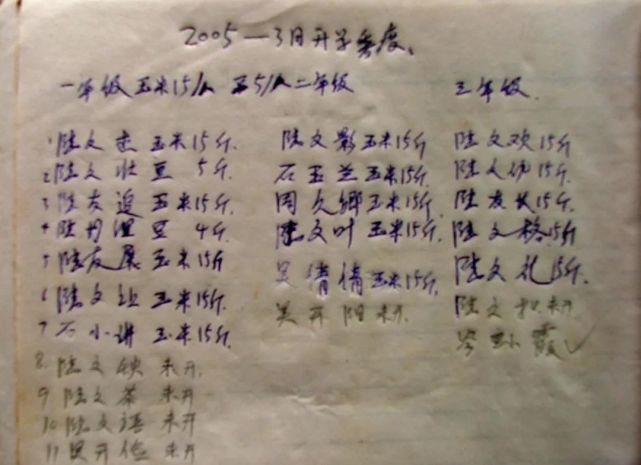 2005—3月开学季度、
一年级 玉米15/人 豆5/人 二年级 三年级.
1 陆文 玉米15斤 陆文影玉米15斤 陆文欢15斤
2 陆文壮豆 5斤. 石玉兰玉米15斤. 陆文 15斤.
3 陆友追玉米15斤. 周久乡玉米15斤. 陆友长15斤.
4 陆 豆 4斤. 陆文叶 玉米15斤. 陆文格15斤
5 陆友展玉米15斤 吴倩倩玉米15斤. 陆文礼15斤.
6 陆文 玉米15斤. 吴开阳未开. 陆文松未开
7 石小讲 玉米15斤. 霞✓
8. 陆文 未开.
9 陆文茶 未开
10 陆文语 未开
11 吴开俭 未开